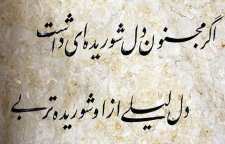 اگر مجنون دل شوریده‌ای داشت
دل لیلی از او شوریده‌تر بی